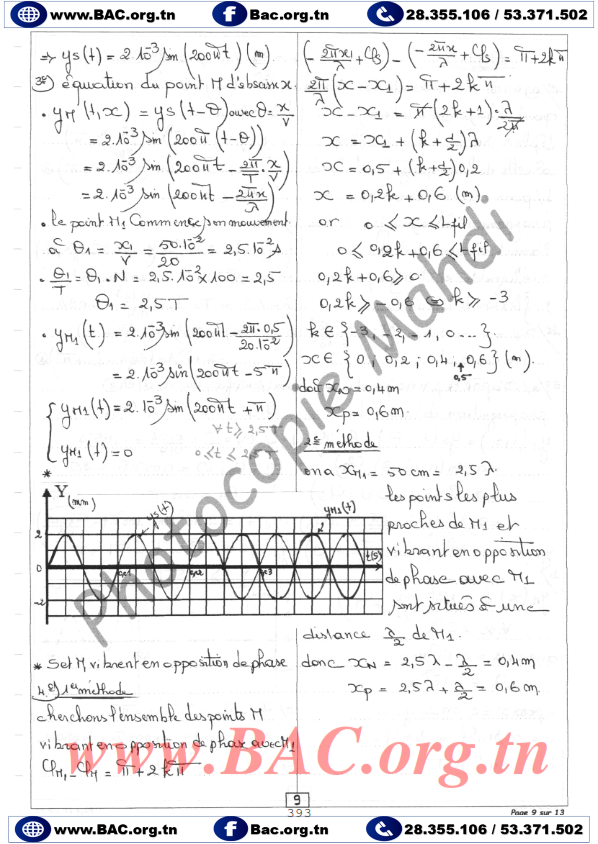 www.BAC.org.tn Bac.org.tn 28.355.106 / 53.371.502
⇒ ys(t) = 2.10⁻³ sin(200πt) (m)
3°) équation du point M d'absaisx.
• yM(t,x) = ys(t-θ) avec θ = x/v
= 2.10⁻³ sin(200π(t-θ))
= 2.10⁻³ sin(200πt - 2π/T . x/v)
= 2.10⁻³ sin(200πt - 2πx/λ)
• le point M1 Commence son mouvement
à θ1 = x1/v = 50.10⁻²/20 = 2,5.10⁻² s
• θ1/T = θ1 . N = 2,5.10⁻² x 100 = 2,5
θ1 = 2,5 T
• yM1(t) = 2.10⁻³ sin(200πt - 2π.0,5/20.10⁻²)
= 2.10⁻³ sin(200πt - 5π)
{ yM1(t) = 2.10⁻³ sin(200πt + π)
∀ t ≥ 2,5T
yM1(t) = 0 0 ≤ t ≤ 2,5 T
*
Y(mm) ys(t) yM1(t)
2
0 t(s)
-2
* S et M1 vibrent en opposition de phase
4°) 1ère méthode
cherchons l'ensemble des points M
vibrant en opposition de phase avec M1
φM1 - φM = π + 2kπ
(-2πx1/λ + φs) - (-2πx/λ + φs) = π + 2kπ
2π/λ (x - x1) = π + 2kπ
x - x1 = π(2k+1) . λ/2π
x = x1 + (k + 1/2)λ
x = 0,5 + (k + 1/2)0,2
x = 0,2k + 0,6 (m)
or 0 ≤ x ≤ Lfil
0 ≤ 0,2k + 0,6 ≤ Lfil
0,2k + 0,6 ≥ 0
0,2k ≥ -0,6 ⇔ k ≥ -3
k ∈ {-3, -2, -1, 0...}
x ∈ {0 ; 0,2 ; 0,4 ; 0,6} (m).
0,5
doù xN = 0,4m
xP = 0,6m
2è méthode
on a xM1 = 50 cm = 2,5 λ
les points les plus
proches de M1 et
vibrant en opposition
de phase avec M1
sont situés à une
distance λ/2 de M1.
donc xN = 2,5λ - λ/2 = 0,4m
xP = 2,5λ + λ/2 = 0,6m
Photocopie Mahdi
www.BAC.org.tn
9
393
Page 9 sur 13
www.BAC.org.tn Bac.org.tn 28.355.106 / 53.371.502